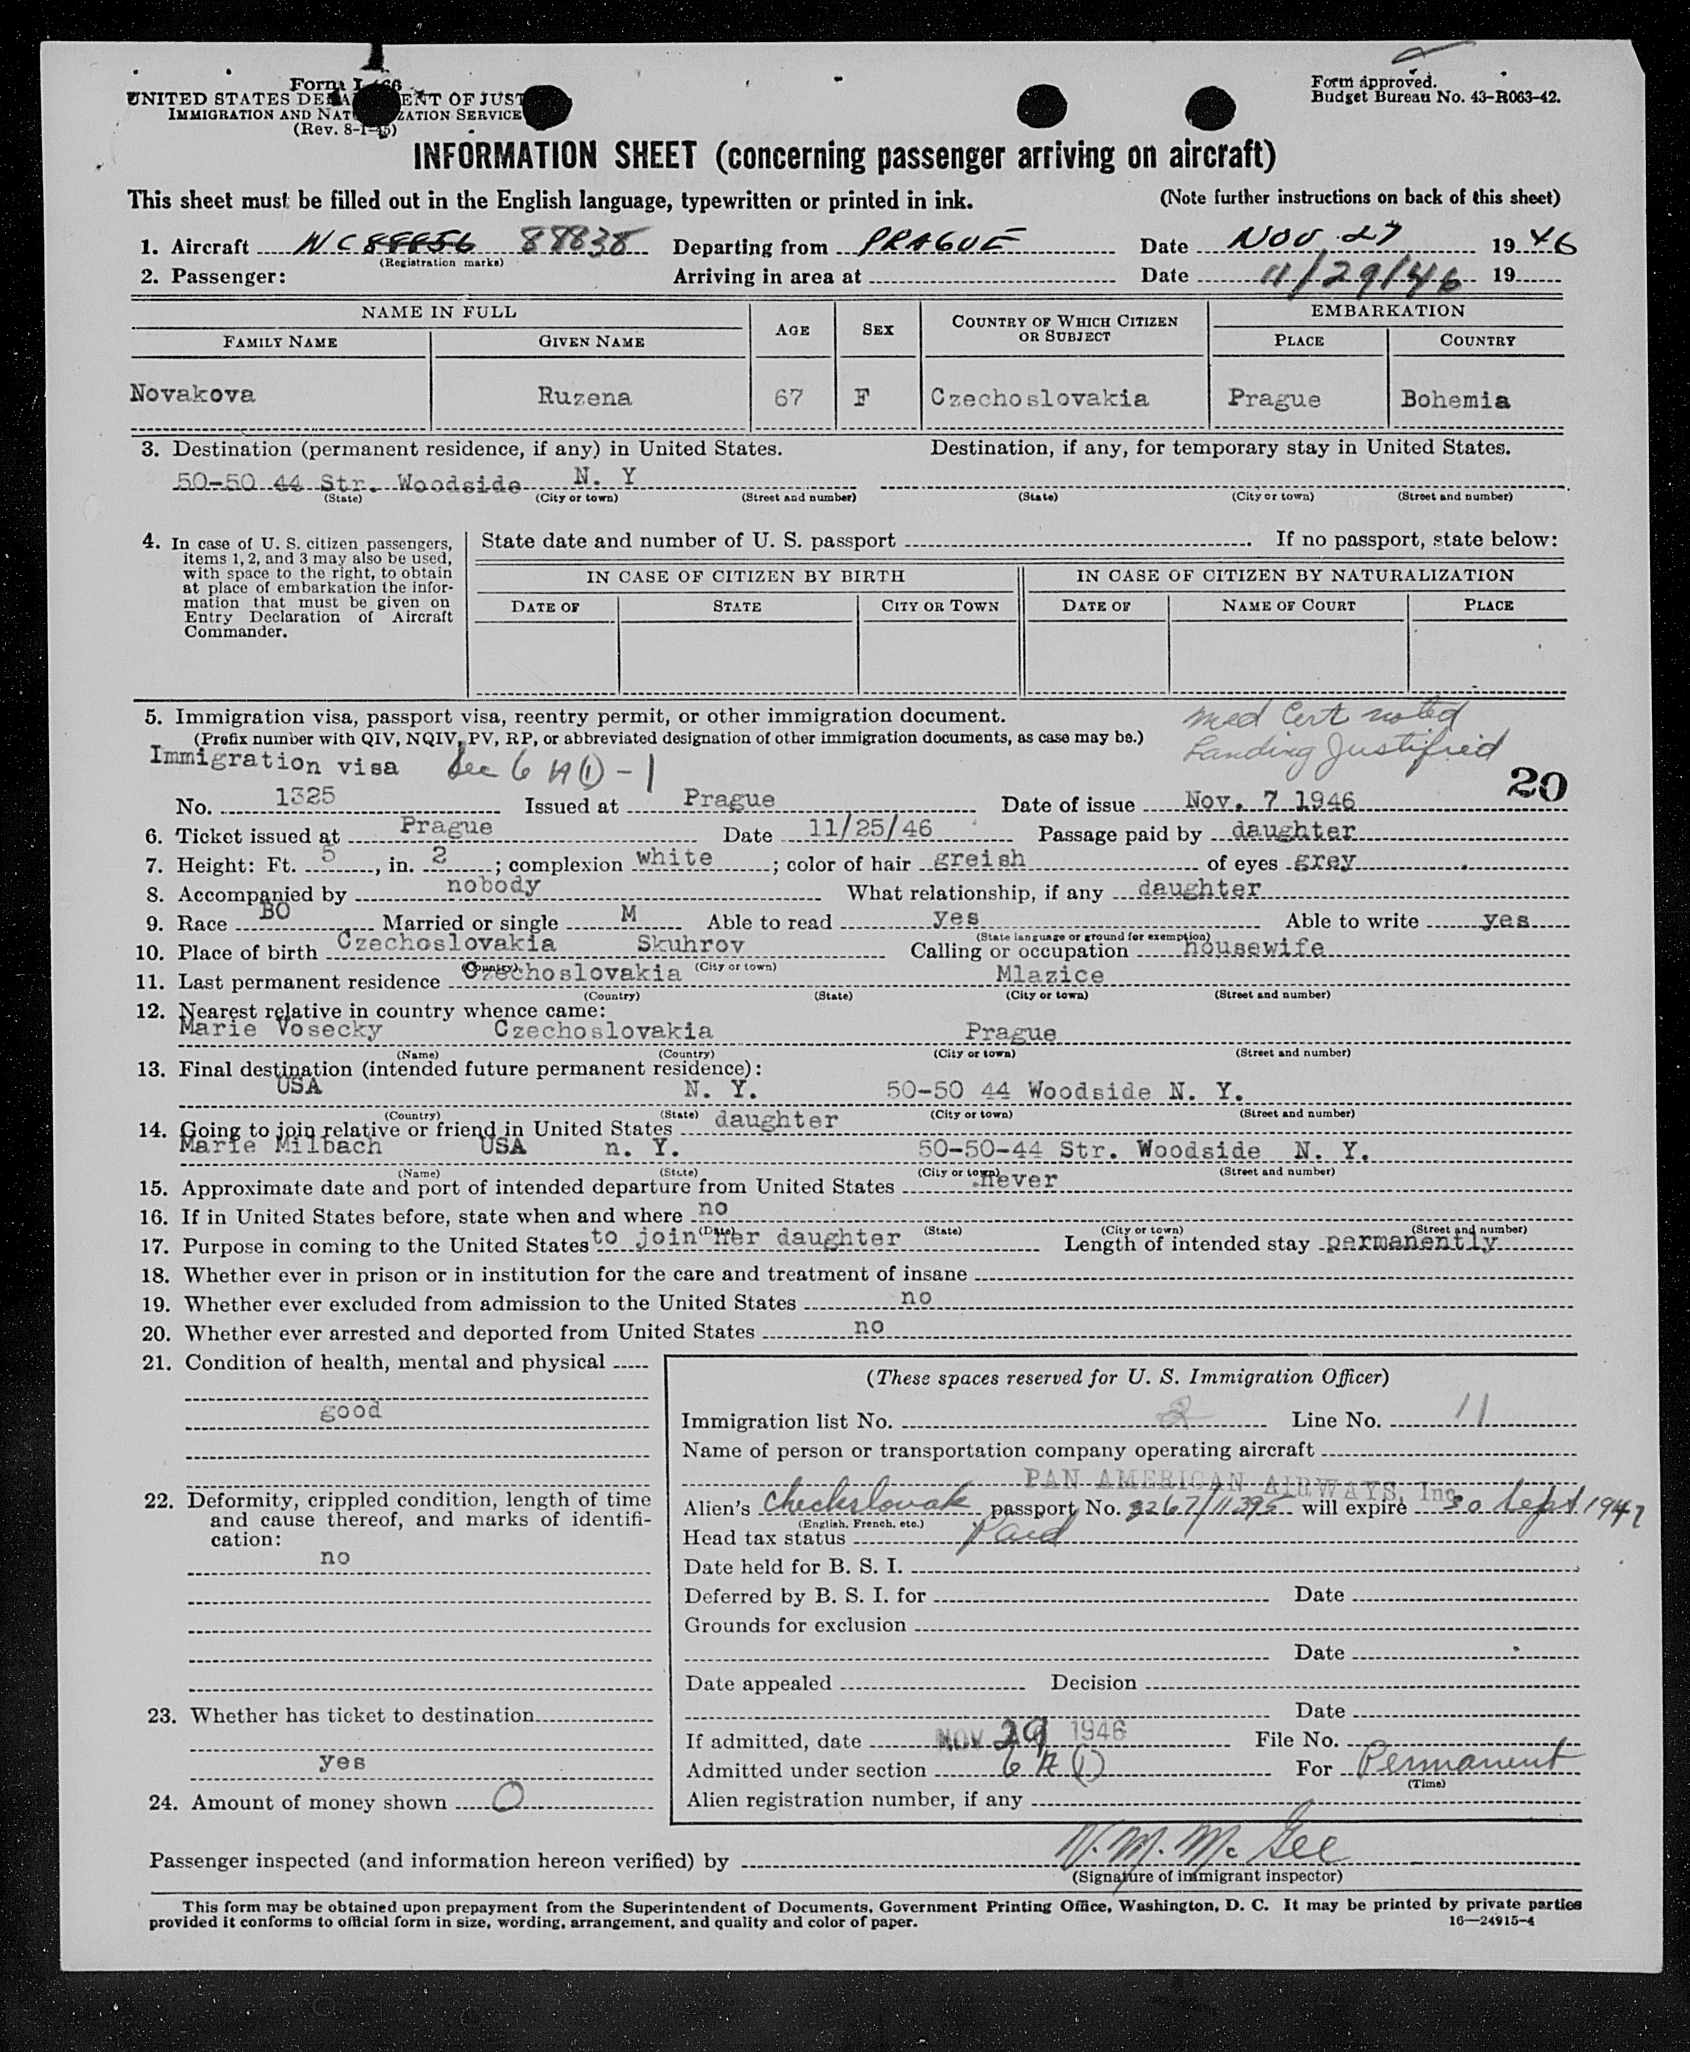 Form I-466
UNITED STATES DEPARTMENT OF JUSTICE
IMMIGRATION AND NATURALIZATION SERVICE
(Rev. 8-1-45)
Form approved.
Budget Bureau No. 43-R063-42.
INFORMATION SHEET (concerning passenger arriving on aircraft)
This sheet must be filled out in the English language, typewritten or printed in ink. (Note further instructions on back of this sheet)
1. Aircraft NC 88856 88838 Departing from PRAGUE Date NOV. 27 1946
(Registration marks)
2. Passenger: Arriving in area at Date 11/29/46 19
NAME IN FULL AGE SEX COUNTRY OF WHICH CITIZEN OR SUBJECT EMBARKATION
FAMILY NAME GIVEN NAME PLACE COUNTRY
Novakova Ruzena 67 F Czechoslovakia Prague Bohemia
3. Destination (permanent residence, if any) in United States. Destination, if any, for temporary stay in United States.
50-50 44 Str. Woodside N. Y
(State) (City or town) (Street and number) (State) (City or town) (Street and number)
4. In case of U. S. citizen passengers, items 1, 2, and 3 may also be used, with space to the right, to obtain at place of embarkation the information that must be given on Entry Declaration of Aircraft Commander.
State date and number of U. S. passport . If no passport, state below:
IN CASE OF CITIZEN BY BIRTH IN CASE OF CITIZEN BY NATURALIZATION
DATE OF STATE CITY OR TOWN DATE OF NAME OF COURT PLACE
5. Immigration visa, passport visa, reentry permit, or other immigration document. Med Cert noted
(Prefix number with QIV, NQIV, PV, RP, or abbreviated designation of other immigration documents, as case may be.) Landing Justified
Immigration visa Sec 6 A (1) - 1
20
No. 1325 Issued at Prague Date of issue Nov. 7 1946
6. Ticket issued at Prague Date 11/25/46 Passage paid by daughter
7. Height: Ft. 5, in. 2; complexion white; color of hair greish of eyes grey
8. Accompanied by nobody What relationship, if any daughter
9. Race BO Married or single M Able to read yes Able to write yes
(State language or ground for exemption)
10. Place of birth Czechoslovakia Skuhrov Calling or occupation housewife
(Country) (City or town)
11. Last permanent residence Czechoslovakia Mlazice
(Country) (State) (City or town) (Street and number)
12. Nearest relative in country whence came:
Marie Vosecky Czechoslovakia Prague
(Name) (Country) (City or town) (Street and number)
13. Final destination (intended future permanent residence):
USA N. Y. 50-50 44 Woodside N. Y.
(Country) (State) (City or town) (Street and number)
14. Going to join relative or friend in United States daughter
Marie Milbach USA n. Y. 50-50-44 Str. Woodside N. Y.
(Name) (State) (City or town) (Street and number)
15. Approximate date and port of intended departure from United States never
16. If in United States before, state when and where no
(Date) (State) (City or town) (Street and number)
17. Purpose in coming to the United States to join her daughter Length of intended stay permanently
18. Whether ever in prison or in institution for the care and treatment of insane
19. Whether ever excluded from admission to the United States no
20. Whether ever arrested and deported from United States no
21. Condition of health, mental and physical
good
22. Deformity, crippled condition, length of time
and cause thereof, and marks of identifi-
cation:
no
23. Whether has ticket to destination
yes
24. Amount of money shown 0
(These spaces reserved for U. S. Immigration Officer)
Immigration list No. 2 Line No. 11
Name of person or transportation company operating aircraft
PAN AMERICAN AIRWAYS, Inc.
Alien's Checkslovak passport No. 3267/11395 will expire 30 Sept 1947
(English, French, etc.)
Head tax status Paid
Date held for B. S. I.
Deferred by B. S. I. for Date
Grounds for exclusion
Date
Date appealed Decision
Date
If admitted, date NOV 29 1946 File No.
Admitted under section 6 A (1) For Permanent
(Time)
Alien registration number, if any
Passenger inspected (and information hereon verified) by N. M. McGee
(Signature of immigrant inspector)
This form may be obtained upon prepayment from the Superintendent of Documents, Government Printing Office, Washington, D. C. It may be printed by private parties
provided it conforms to official form in size, wording, arrangement, and quality and color of paper. 16—24915-4